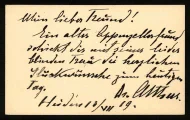 Mein lieber Freund!
Ein alter Appenzellerfreund
schickt dir und deiner lieben
die herzlichen
Glückwünsche zum heutigen
Tag.
Heiden 10/VII 19. Dr. Altherr.